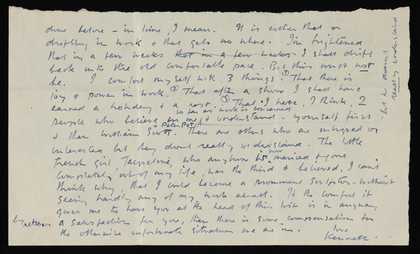 done before – in line, I mean. It is either that or
drifting in work & that gets me where. I'm frightened
that in a few weeks I shall drift
back into the old comfortable pace. But this must not
be. I comfort myself with 3 things: ① That there is
joy & power in work ② That after a show I shall have
earned a holiday & a rest. ③ That I have, I think, 2
so far as work is concerned
people who believe in me & understand. yourself first
Peter Pot
& then William Scott. There are others who are intrigued or
interested but they don't really understand. The little
French girl Jacqueline, who anyhow is married & gone
completely out of my life, was the third & believed, I can't
think why, that I could become a prominent sculptor without
seeing hardly any of my work at all. If the comfort it
gives me to have you at the head of this list is in anyway,
a satisfaction for you, then there is some compensation for
the otherwise unfortunate situation we are in.
love
Kenneth
but he doesn't
really understand